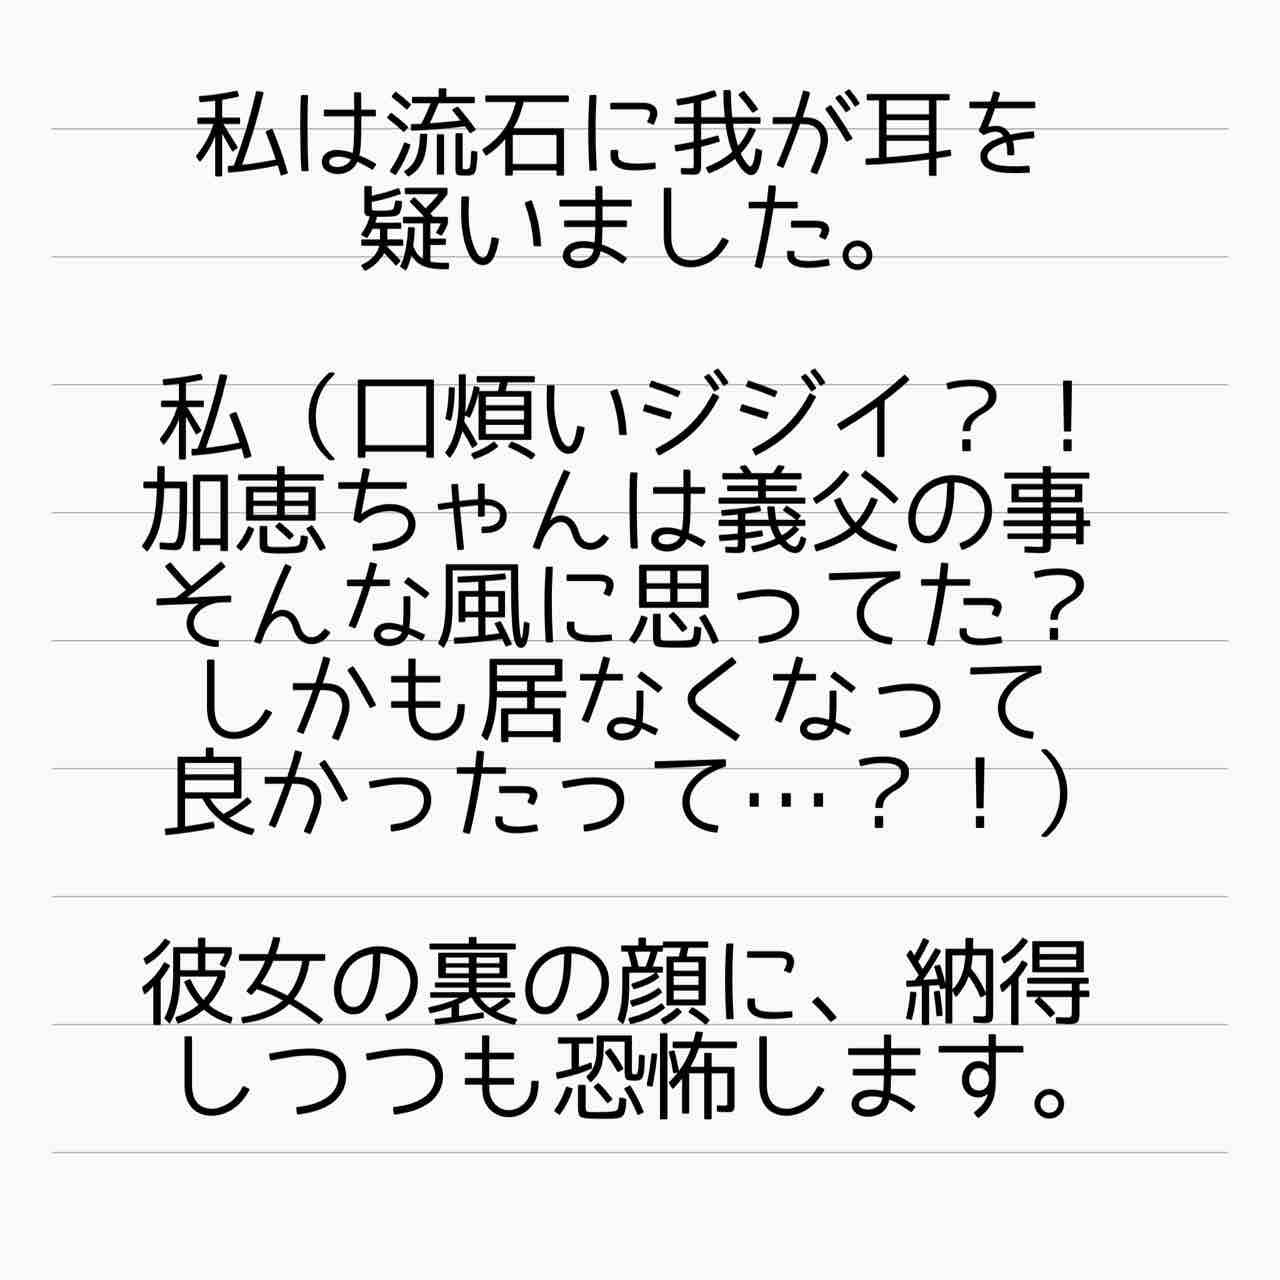 私は流石に我が耳を
疑いました。
私（口煩いジジイ？！
加恵ちゃんは義父の事
そんな風に思ってた？
しかも居なくなって
良かったって…？！）
彼女の裏の顔に、納得
しつつも恐怖します。